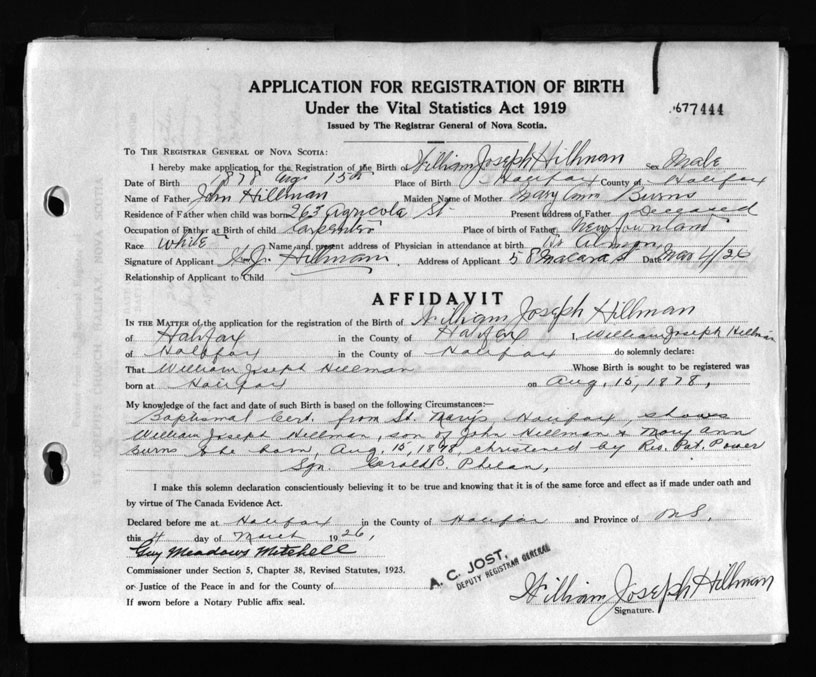 APPLICATION FOR REGISTRATION OF BIRTH
Under the Vital Statistics Act 1919
677444
Issued by The Registrar General of Nova Scotia.
To The Registrar General of Nova Scotia:
I hereby make application for the Registration of the Birth of William Joseph Hillman Sex Male
Date of Birth 1878 Aug 15th Place of Birth Halifax County of Halifax
Name of Father John Hillman Maiden Name of Mother Mary Ann Burns
Residence of Father when child was born 263 Agricola St Present address of Father Deceased
Occupation of Father at Birth of child Carpenter Place of birth of Father Newfounland
Race White Name and present address of Physician in attendance at birth Almon
Signature of Applicant W. J. Hillman. Address of Applicant 58 Macara St Date Mar 4/26
Relationship of Applicant to Child
AFFIDAVIT
In the Matter of the application for the registration of the Birth of William Joseph Hillman
of Halifax in the County of Halifax I, William Joseph Hillman
of Halifax in the County of Halifax do solemnly declare:
That William Joseph Hillman Whose Birth is sought to be registered was
born at Halifax on Aug. 15, 1878,
My knowledge of the fact and date of such Birth is based on the following Circumstances:—
Baptismal Cert. from St. Mary's Halifax shows
William Joseph Hillman, son of John Hillman & Mary Ann
Burns to be born, Aug. 15, 1878, christened by Rev. Pat. Power
Sgn. Gerald B. Phelan,
I make this solemn declaration conscientiously believing it to be true and knowing that it is of the same force and effect as if made under oath and
by virtue of The Canada Evidence Act.
Declared before me at Halifax in the County of Halifax and Province of N.S,
this 4 day of March 1926,
Guy Meadows Mitchell
Commissioner under Section 5, Chapter 38, Revised Statutes, 1923.
A. C. JOST,
DEPUTY REGISTRAR GENERAL
or Justice of the Peace in and for the County of
William Joseph Hillman
If sworn before a Notary Public affix seal.
Signature.